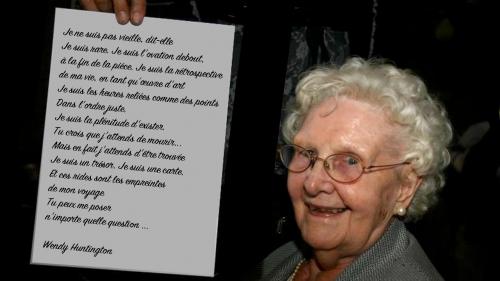 Je ne suis pas vieille, dit-elle
Je suis rare. Je suis l'ovation debout,
à la fin de la pièce. Je suis la rétrospective
de ma vie, en tant qu'œuvre d'art
Je suis les heures reliées comme des points
Dans l'ordre juste.
Je suis la plénitude d'exister.
Tu crois que j'attends de mourir...
Mais en fait j'attends d'être trouvée
Je suis un trésor. Je suis une carte.
Et ces rides sont les empreintes
de mon voyage
Tu peux me poser
n'importe quelle question ...
Wendy Huntington